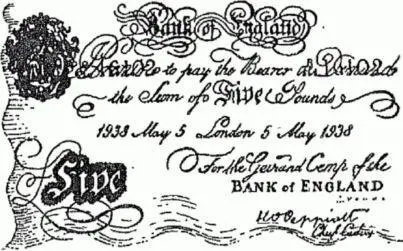 Bank of England
I Promise to pay the Bearer on Demand
the Sum of Five Pounds
1938 May 5 London 5 May 1938
For the Gov: and Comp: of the
BANK of ENGLAND
Five
Chief Cashier